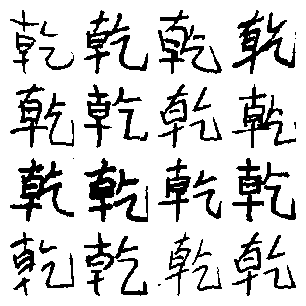 乾乾乾乾
乾乾乾乾
乾乾乾乾
乾乾乾乾